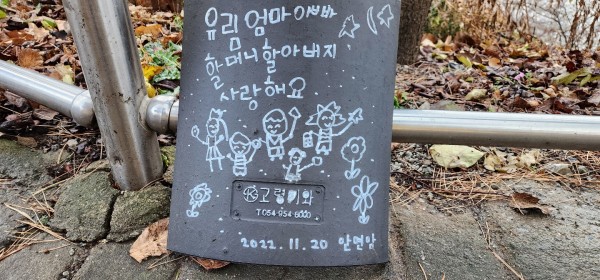 유림 엄마 아빠
할머니 할아버지
사랑해요
고령기와
T.054-954-8000
2022. 11. 20 안면암